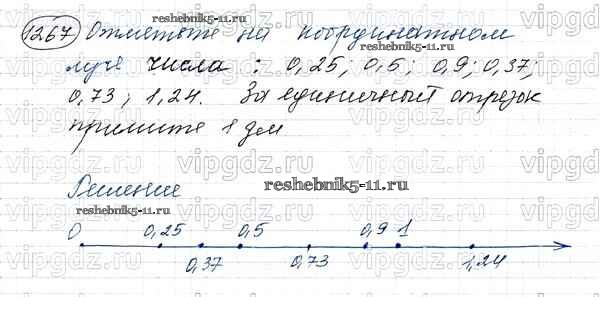 1267 Отметьте на координатном
луче числа : 0,25; 0,5; 0,9; 0,37;
0,73; 1,24. За единичный отрезок
примите 1 дм
Решение
0 0,25 0,5 0,9 1
0,37 0,73 1,24
reshebnik5-11.ru
reshebnik5-11.ru
reshebnik5-11.ru
reshebnik5-11.ru
vipgdz.ru